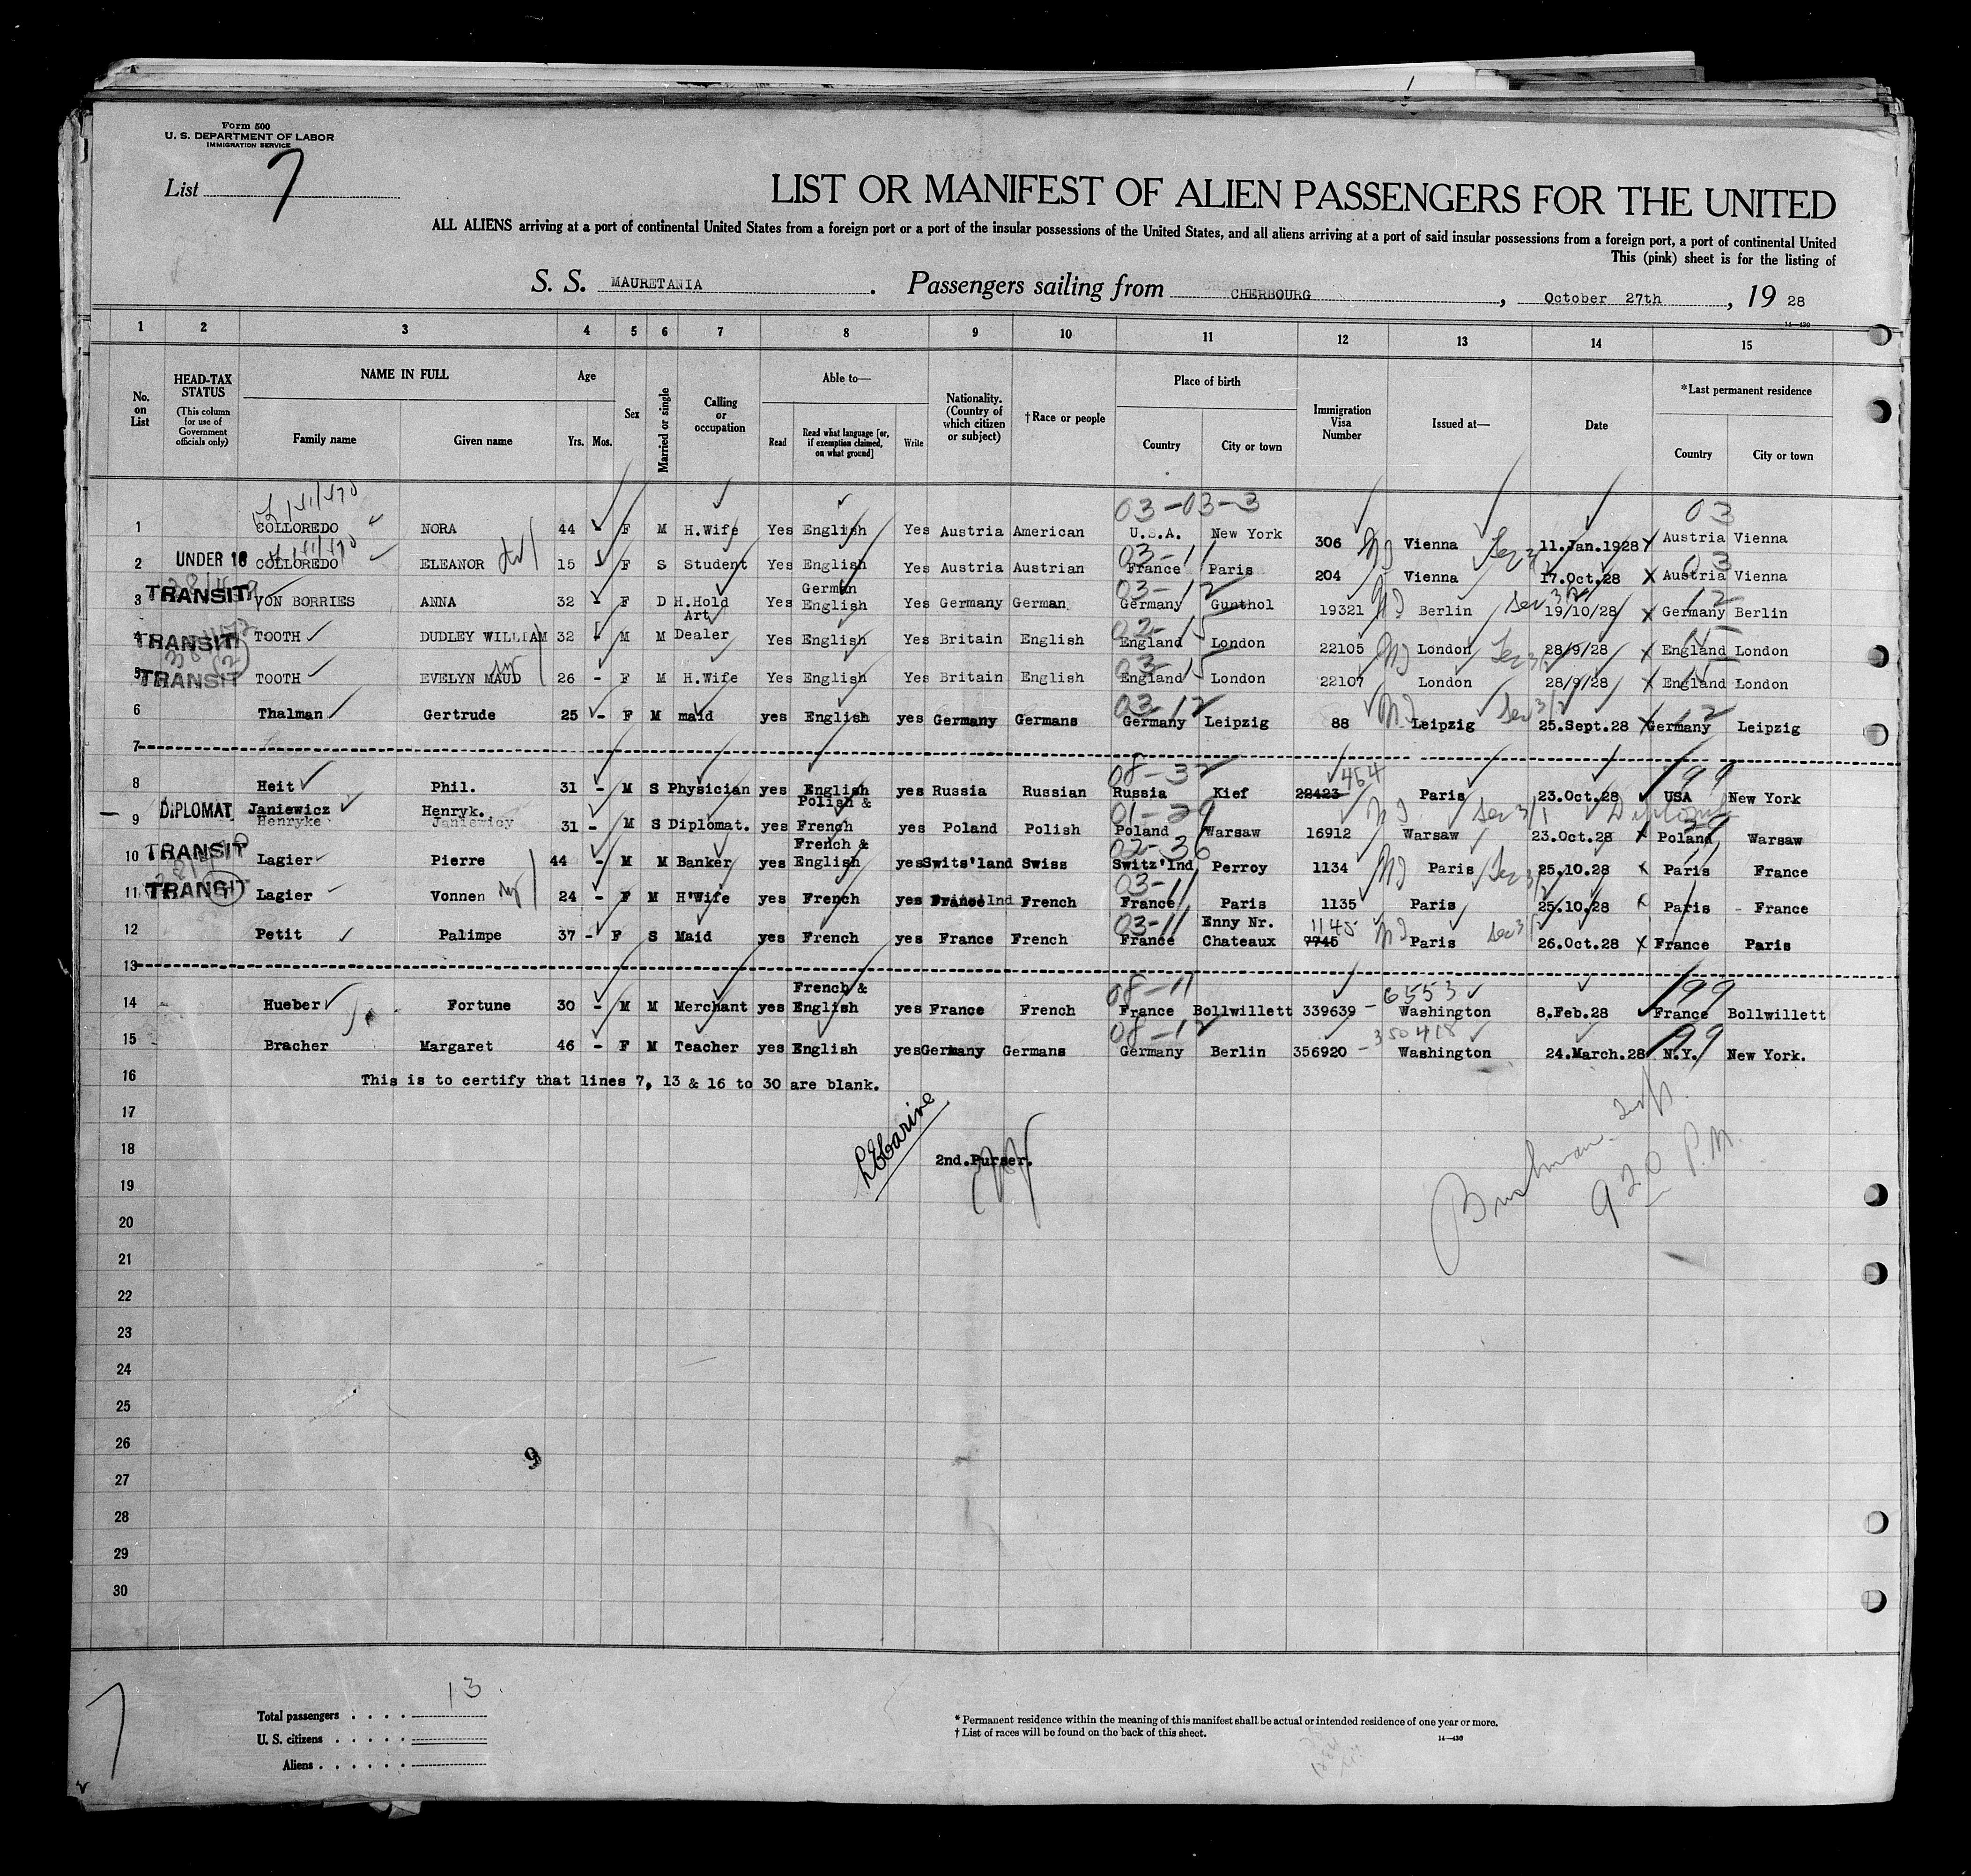 Form 500
U. S. DEPARTMENT OF LABOR
IMMIGRATION SERVICE
List 7
LIST OR MANIFEST OF ALIEN PASSENGERS FOR THE UNITED
ALL ALIENS arriving at a port of continental United States from a foreign port or a port of the insular possessions of the United States, and all aliens arriving at a port of said insular possessions from a foreign port, a port of continental United
This (pink) sheet is for the listing of
S. S. MAURETANIA. Passengers sailing from CHERBOURG, October 27th, 19 28
14—430
1 2 3 4 5 6 7 8 9 10 11 12 13 14 15
No. on List
HEAD-TAX STATUS (This column for use of Government officials only)
NAME IN FULL
Family name Given name
Age
Yrs. Mos.
Sex
Married or single
Calling or occupation
Able to—
Read Read what language [or, if exemption claimed, on what ground] Write
Nationality. (Country of which citizen or subject)
†Race or people
Place of birth
Country City or town
Immigration Visa Number
Issued at—
Date
*Last permanent residence
Country City or town
03-03-3 03
1 COLLOREDO NORA 44 - F M H.Wife Yes English Yes Austria American U.S.A. New York 306 Vienna 11.Jan.1928 Austria Vienna
03-11 03
2 UNDER 16 COLLOREDO ELEANOR 15 - F S Student Yes English Yes Austria Austrian France Paris 204 Vienna 17.Oct.28 X Austria Vienna
03-12 12
3 TRANSIT VON BORRIES ANNA 32 - F D H.Hold Yes German English Yes Germany German Germany Gunthol 19321 Berlin 19/10/28 X Germany Berlin
02-15 15
4 TRANSIT TOOTH DUDLEY WILLIAM 32 - M M Art Dealer Yes English Yes Britain English England London 22105 London 28/9/28 X England London
03-15 15
5 TRANSIT TOOTH EVELYN MAUD 26 - F M H.Wife Yes English Yes Britain English England London 22107 London 28/9/28 X England London
03-12 12
6 Thalman Gertrude 25 - F M maid yes English yes Germany Germans Germany Leipzig 88 Leipzig 25.Sept.28 X Germany Leipzig
7
08-32 464 199
8 Heit Phil. 31 - M S Physician yes English yes Russia Russian Russia Kief 22423 Paris 23.Oct.28 USA New York
01-29 Diplomat
9 DIPLOMAT Janiewicz Henryk. Henryke Janiewicy 31 - M S Diplomat. yes Polish & French yes Poland Polish Poland Warsaw 16912 Warsaw 23.Oct.28 X Poland Warsaw
02-36
10 TRANSIT Lagier Pierre 44 - M M Banker yes French & English yes Swits'land Swiss Switz'lnd Perroy 1134 Paris 25.10.28 X Paris France
03-11
11 TRANSIT Lagier Vonnen 24 - F M H'Wife yes French yes France French France Paris 1135 Paris 25.10.28 Paris - France
03-11 1145
12 Petit Palimpe 37 - F S Maid yes French yes France French France Enny Nr. Chateaux 7745 Paris 26.Oct.28 X France Paris
13
08-11 6553 199
14 Hueber Fortune 30 - M M Merchant yes French & English yes France French France Bollwillett 339639 - Washington 8.Feb.28 France Bollwillett
08-12 350418 199
15 Bracher Margaret 46 - F M Teacher yes English yes Germany Germans Germany Berlin 356920 - Washington 24.March.28 N.Y. New York.
16 This is to certify that lines 7, 13 & 16 to 30 are blank.
17
18 2nd.Purser.
19 920 P.M.
20
21
22
23
24
25
26
9
27
28
29
30
7
Total passengers 13
U. S. citizens
Aliens
* Permanent residence within the meaning of this manifest shall be actual or intended residence of one year or more.
† List of races will be found on the back of this sheet.
14—430